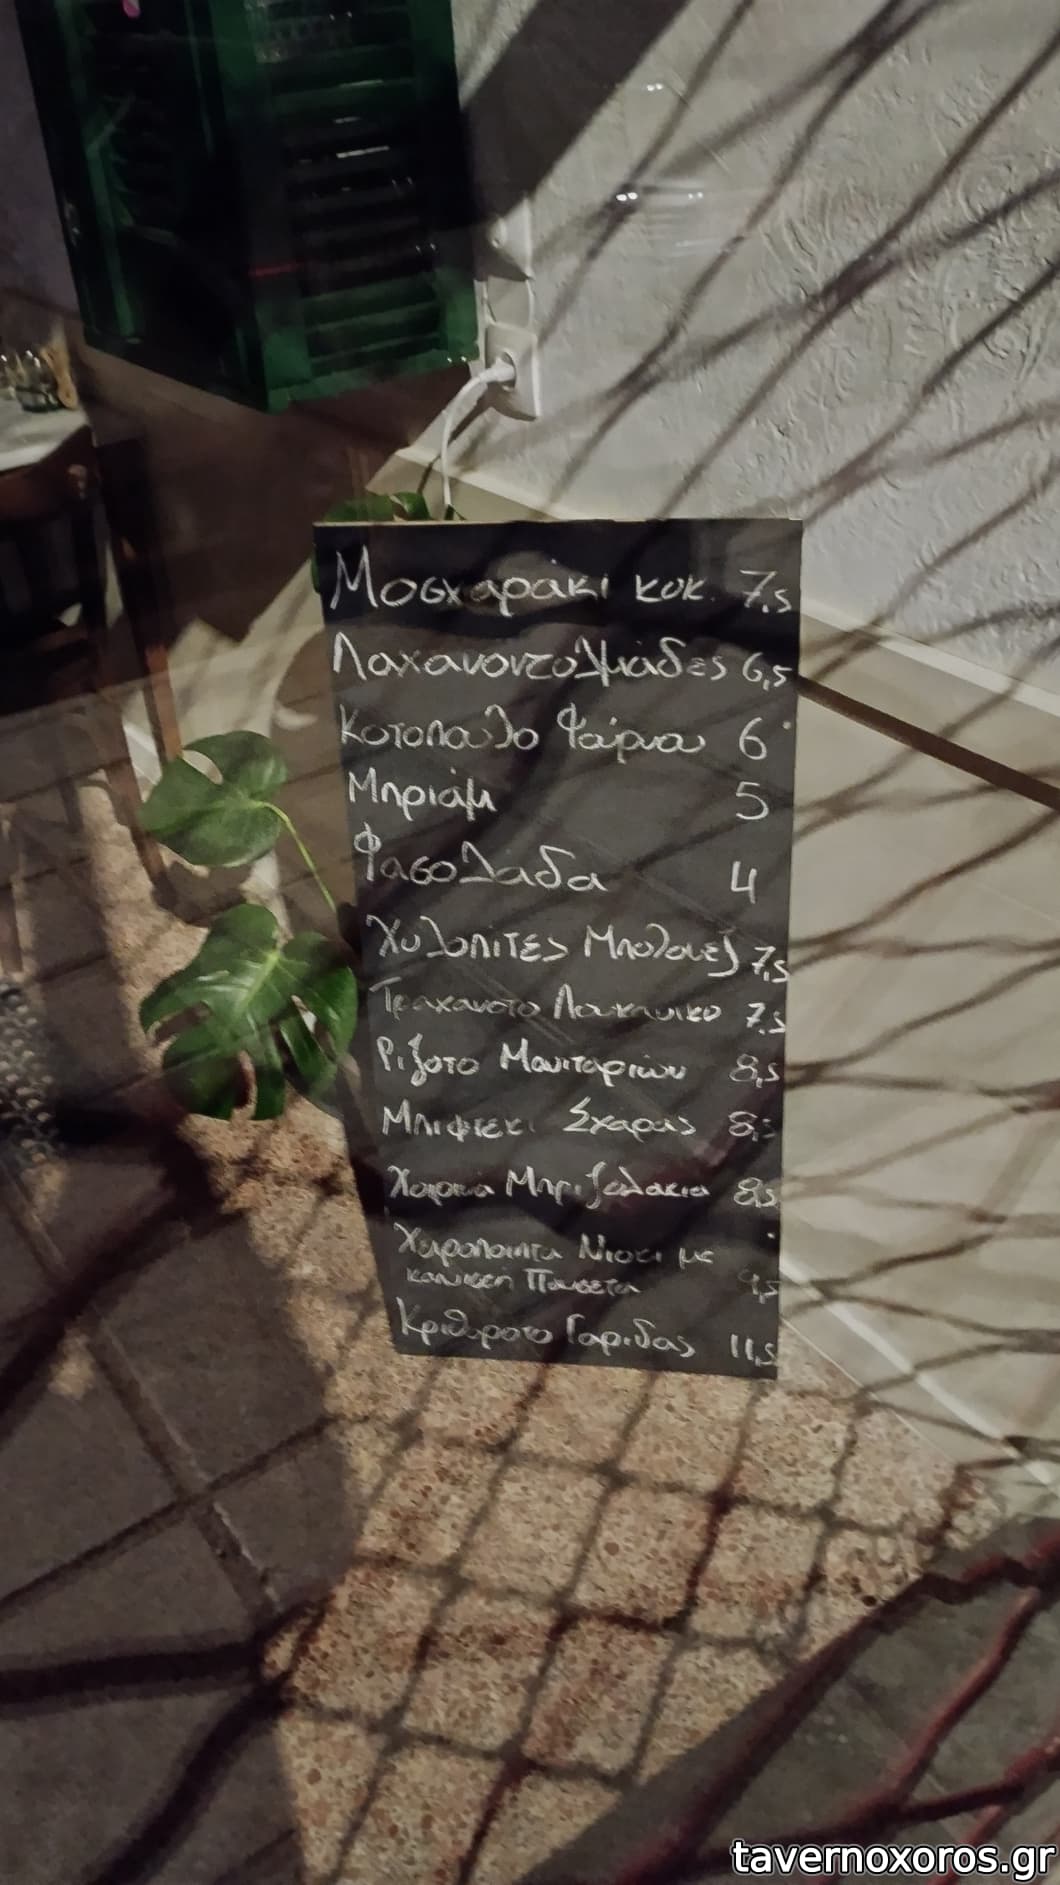 Μοσχαράκι κοκ. 7,5
Λαχανοντολμάδες 6,5
Κοτοπουλο Φούρνου 6
Μπριάμ 5
Φασολαδα 4
Χυλοπιτες Μπολονεζ 7,5
Τραχανοτο Λουκανικο 7,5
Ριζοτο Μανιταριών 8,5
Μπιφτεκι Σχαρας 8,5
Χοιρινά Μπριζολακια 8,5
Χειροποιητα Νιοκι με
καπνιστή Πανσετα 9,5
Κριθαροτο Γαριδας 11,5
tavernoxoros.gr